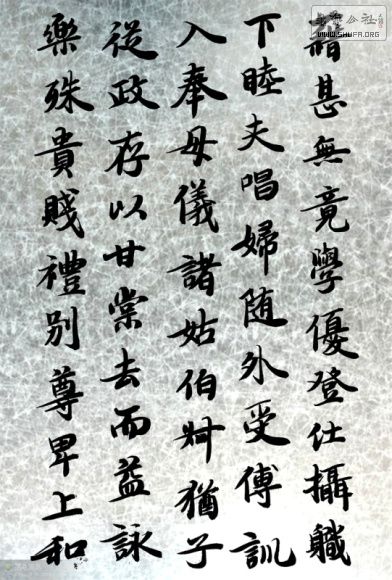 公社
WWW.SHUFA.ORG
籍甚無竟學優登仕攝職
下睦夫唱婦随外受傅訓
入奉母儀諸姑伯叔猶子
從政存以甘棠去而益詠
樂殊貴賤禮别尊卑上和